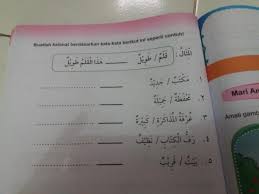 Buatlah kalimat berdasarkan kata-kata berikut ini seperti contoh!
المثال : قلم / طويل ______ هذا القلم طويل
١. مكتب / جديد
٢. محفظة / جميلة
٣. غرفة المذاكرة / كبيرة
٤. رف الكتاب / نظيف
٥. بيت / قريب
Mari An
Amati gamb